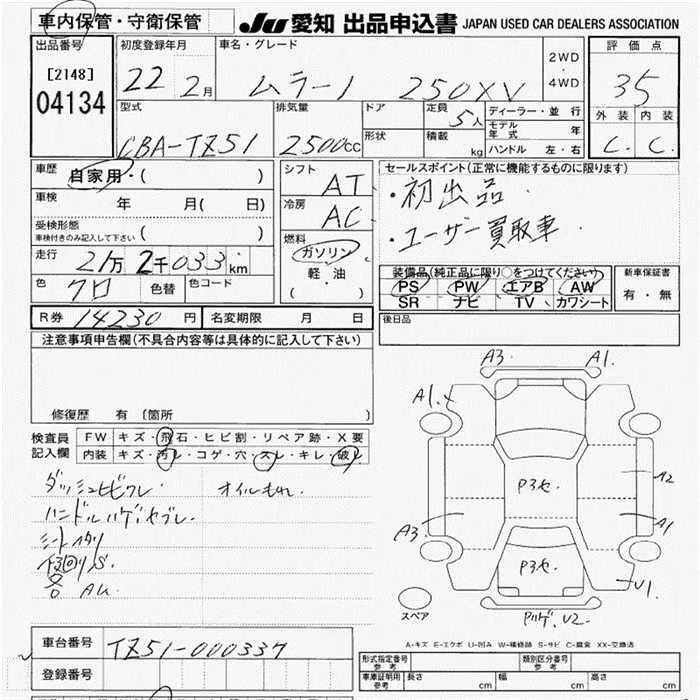 車内保管・守衛保管 JU 愛知 出品申込書 JAPAN USED CAR DEALERS ASSOCIATION
出品番号 初度登録年月 車名・グレード 2WD・4WD 評価点
[2148] 22 2月 ムラーノ 250XV 35
04134
型式 排気量 ドア 定員 5人 ディーラー・並行 外装 内装
CBA-TZ51 2500cc 形状 積載 kg モデル年式 年 C. C.
ハンドル 左・右
車歴 自家用・( ) シフト AT セールスポイント(正常に機能するものに限ります)
車検 年 月( 日) 冷房 AC ・初出品
受検形態 車検付きのみ記入して下さい ( ) ・ユーザー買取車
走行 21万2千033km 燃料 ガソリン 軽・油 ( )
装備品(純正品に限り○をつけてください) 新車保証書
PS PW エアB AW 有・無
色 クロ 色替 色コード SR ナビ TV カワシート
R券 14230円 名変期限 月 日 後日品
注意事項申告欄(不具合内容等は具体的に記入して下さい)
修復歴 有〔箇所 〕
検査員記入欄 FW キズ・飛石・ヒビ割・リペア跡・X要
内装 キズ・汚レ・コゲ・穴・スレ・キレ・破レ
ダッシュヒビワレ オイルもれ
ハンドルハゲ
S.
A3. A1.
A1.
P3セ
A2
A3. A1
P3セ
U1.
スペア U2.
A-キズ E-エクボ U-凹み W-補修跡 S-サビ C-腐食 XX-交換済
車台番号 TZ51-000337
登録番号
形式指定番号 参考 類別区分番号 参考
車庫証明用 参考 長さ cm 幅 cm 高さ cm